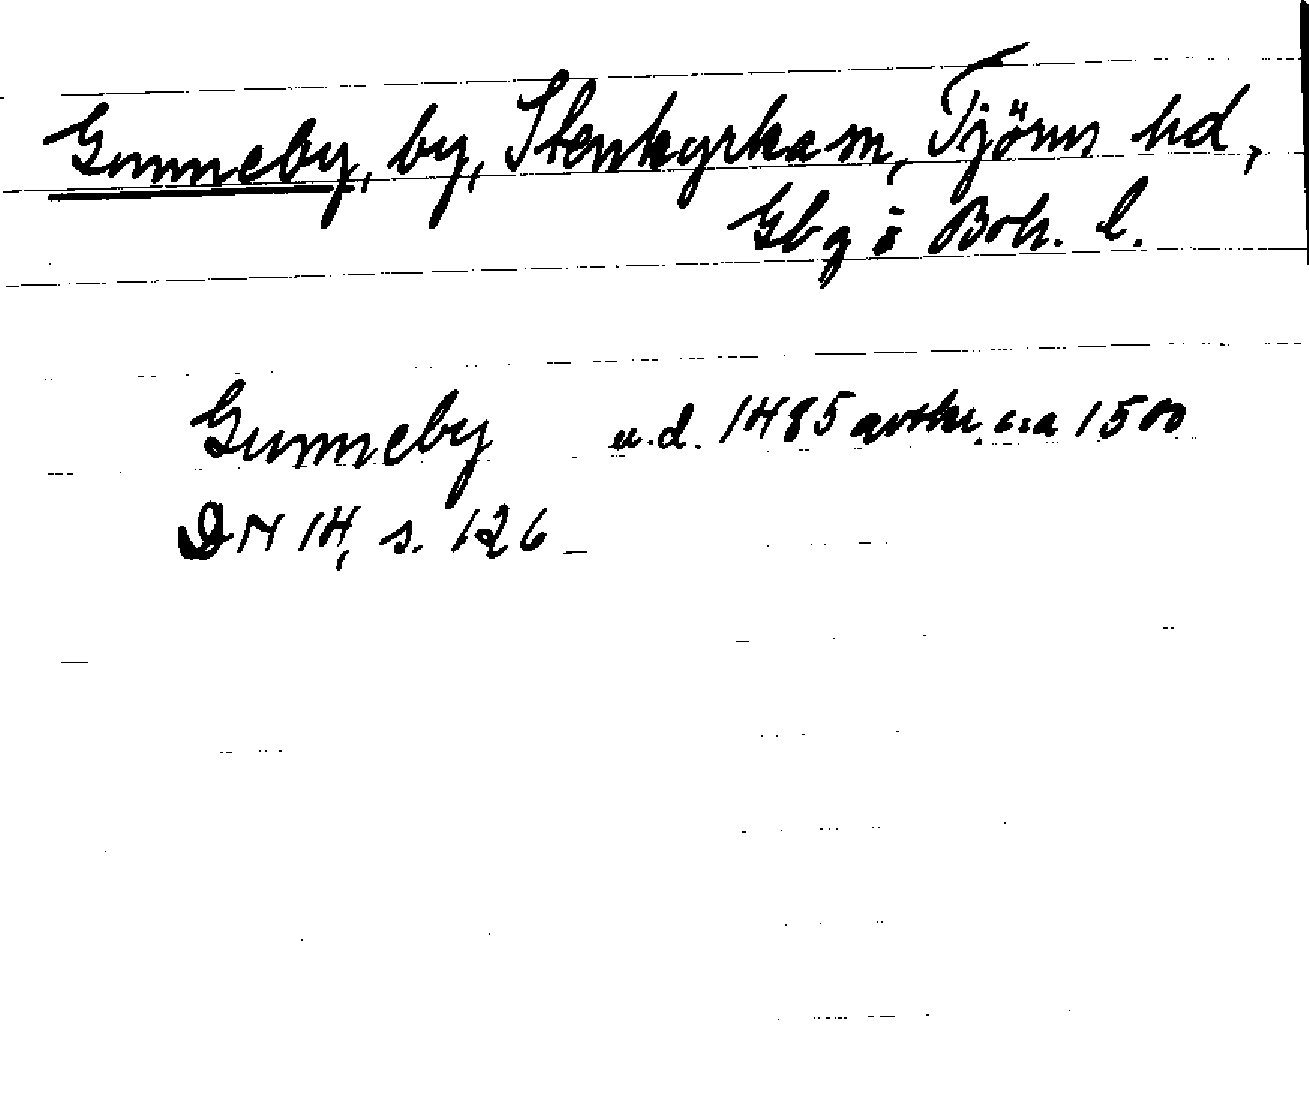 Gunneby, by, Stenkyrka sn, Tjörns hd,
Gbg o Boh. l.
Gunneby u.d. 1485 avskr. c:a 1500
DN 14, s. 126